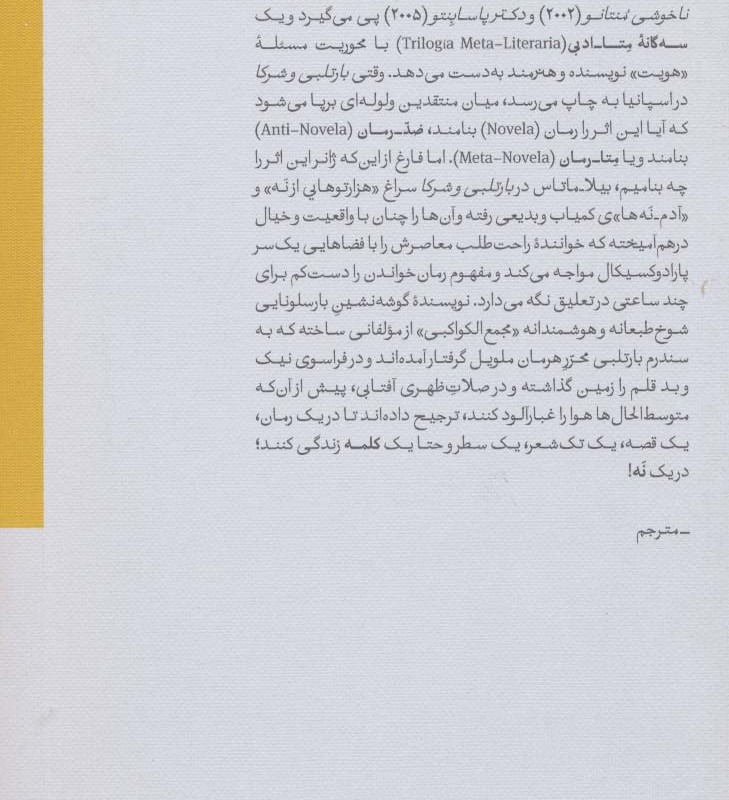 ناخوشی مُنتانو (۲۰۰۲) و دکتر پاسابِنتو (۲۰۰۵) پی می‌گیرد و یک
سه‌گانهٔ مِتا-ادبی (Trilogía Meta-Literaria) با محوریت مسئلهٔ
«هویت» نویسنده و هنرمند به‌دست می‌دهد. وقتی بارتلبی و شرکا
در اسپانیا به چاپ می‌رسد، میان منتقدین ولوله‌ای برپا می‌شود
که آیا این اثر را رمان (Novela) بنامند، ضدّ-رمان (Anti-Novela)
بنامند و یا مِتا-رمان (Meta-Novela). اما فارغ از این‌که ژانر این اثر را
چه بنامیم، بیلا-ماتاس در بارتلبی و شرکا سراغ «هزارتوهایی از نَه» و
«آدم-نَه‌ها»ی کمیاب و بدیعی رفته و آن‌ها را چنان با واقعیت و خیال
درهم‌آمیخته که خوانندهٔ راحت‌طلب معاصرش را با فضاهایی یک‌سر
پارادوکسیکال مواجه می‌کند و مفهوم رمان‌خواندن را دست‌کم برای
چند ساعتی در تعلیق نگه می‌دارد. نویسندهٔ گوشه‌نشینِ بارسلونایی
شوخ‌طبعانه و هوشمندانه «مجمع‌الکواکبی» از مؤلفانی ساخته که به
سندرم بارتلبی محرّرِ هرمان ملویل گرفتار آمده‌اند و در فراسوی نیک
و بد قلم را زمین گذاشته و در صلاتِ ظهری آفتابی، پیش از آن‌که
متوسط‌الحال‌ها هوا را غبارآلود کنند، ترجیح داده‌اند تا در یک رمان،
یک قصه، یک تک‌شعر، یک سطر و حتا یک کلمه زندگی کنند؛
در یک نَه!
ـ مترجم